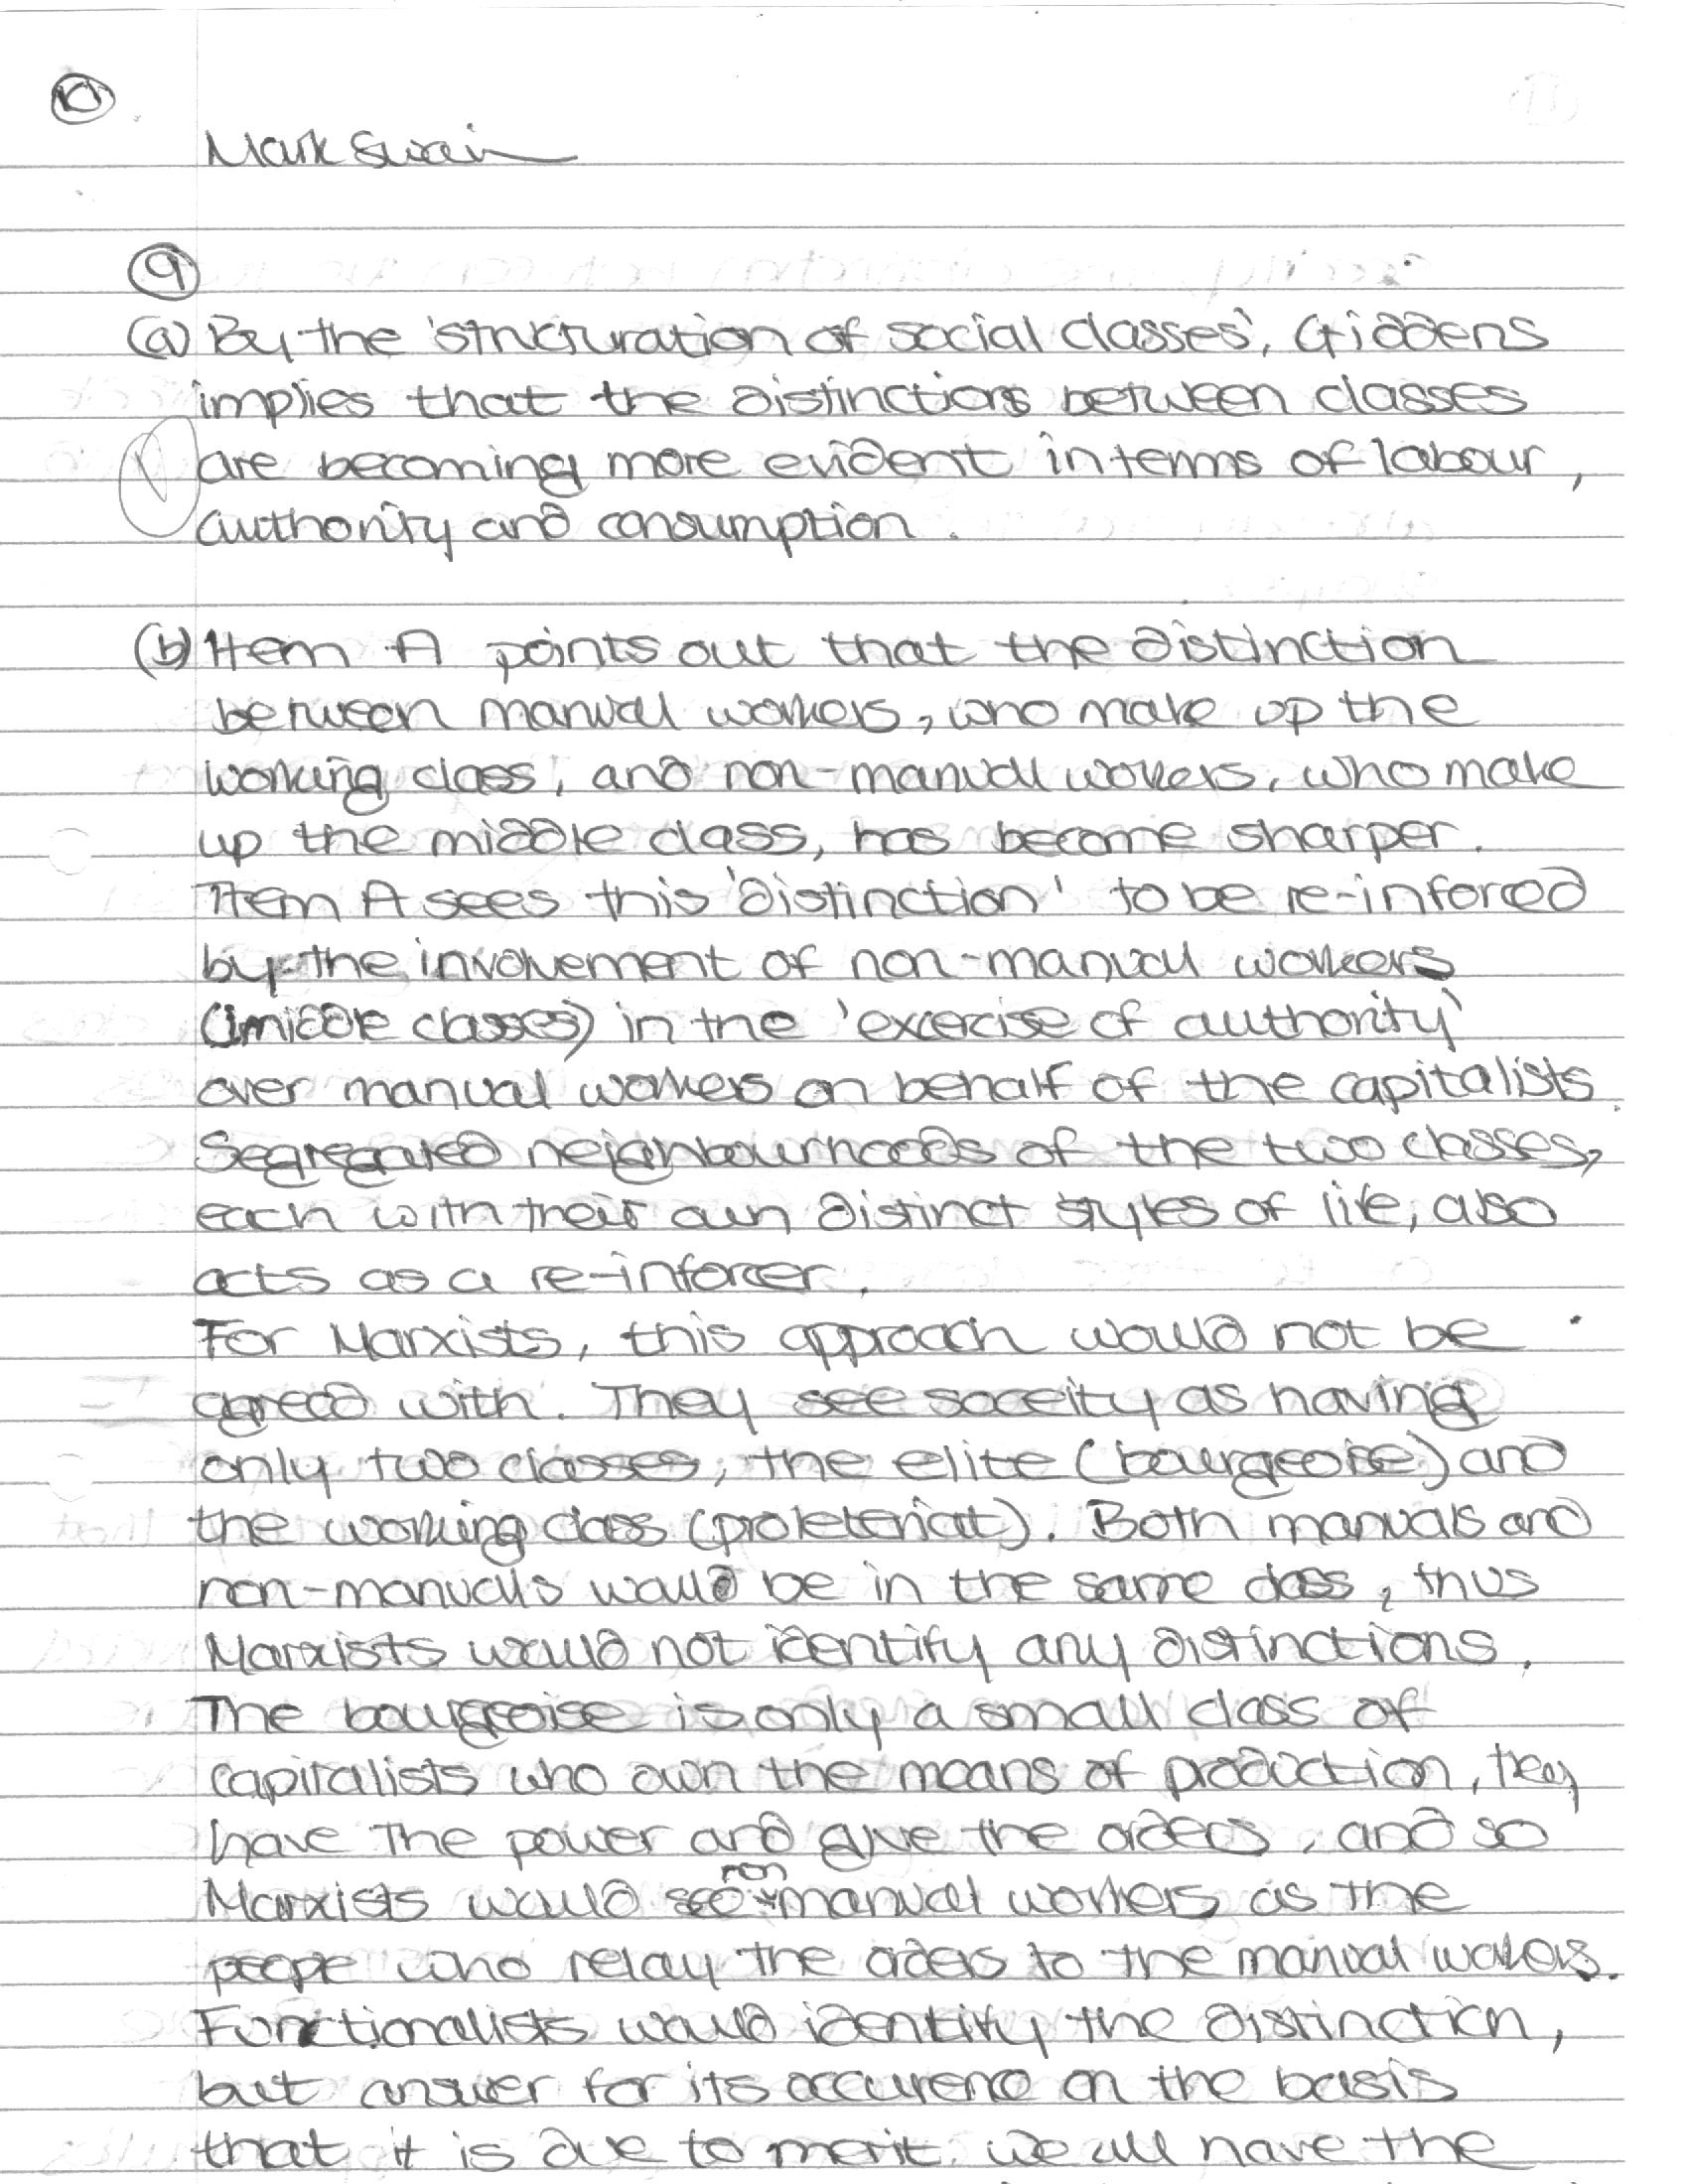 Mark Swain
9
(a) By the 'structuration of social classes', Giddens
implies that the distinctions between classes
are becoming more evident in terms of labour,
authority and consumption.
(b) Item A points out that the distinction
between manual workers, who make up the
working class, and non-manual workers, who make
up the middle class, has become sharper.
Item A sees this 'distinction' to be re-inforced
by the involvement of non-manual workers
(middle classes) in the 'excercise of authority'
over manual workers on behalf of the capitalists.
Segregated neighbourhoods of the two classes,
each with their own distinct styles of life, also
acts as a re-inforcer.
For Marxists, this approach would not be
agreed with. They see soceity as having
only two classes, the elite (bourgeoise) and
the working class (proleteriat). Both manuals and
non-manuals would be in the same class, thus
Marxists would not identify any distinctions.
The bourgeoise is only a small class of
capitalists who own the means of production, they
have the power and give the orders, and so
Marxists would see non manual workers as the
people who relay the orders to the manual workers.
Functionalists would identify the distinction,
but answer for its occurence on the basis
that it is due to merit. we all have the